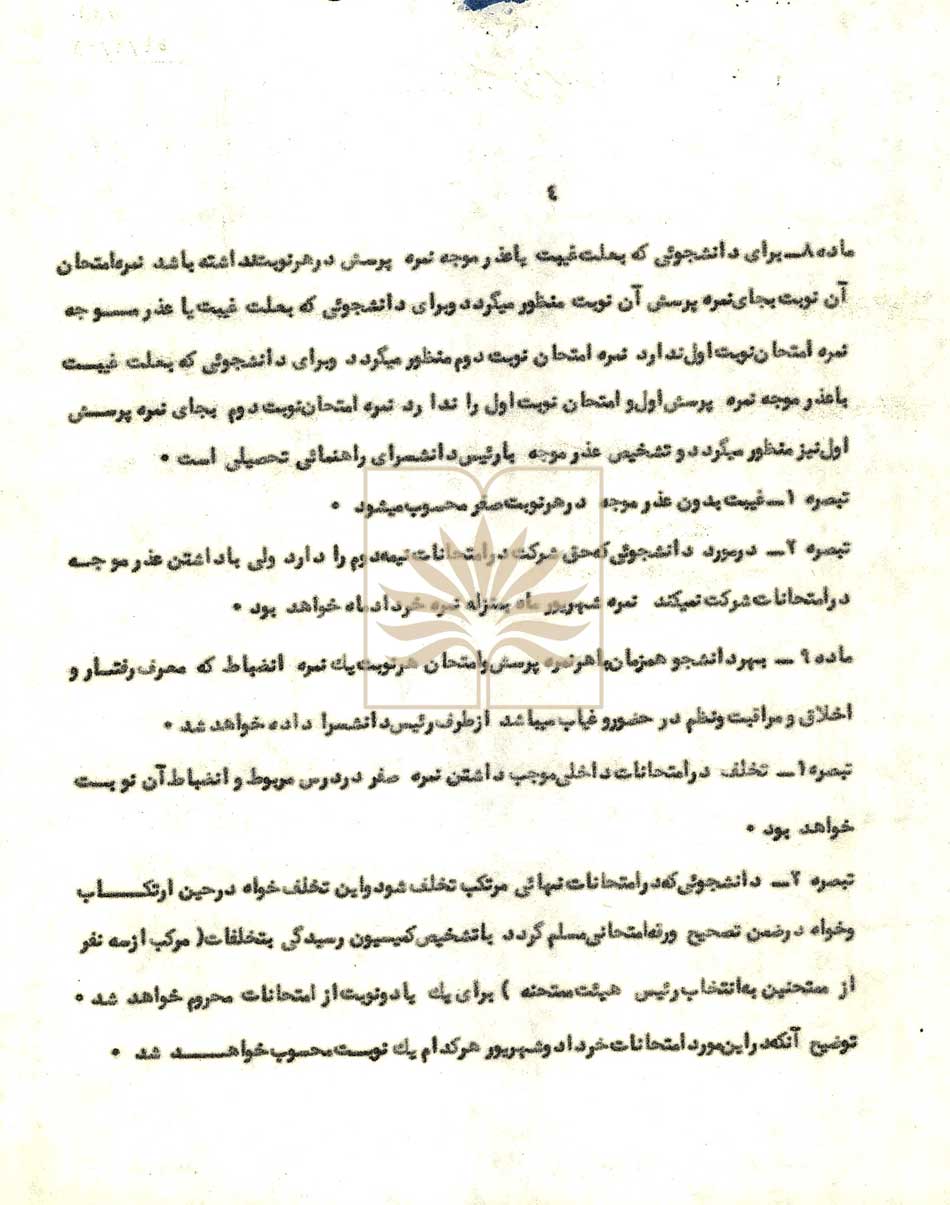 ٤
ماده ۸ــ برای دانشجوئی که بعلت غیبت باعذر موجه نمره پرسش درهرنوبت نداشته باشد نمره امتحان
آن نوبت بجای نمره پرسش آن نوبت منظور میگردد وبرای دانشجوئی که بعلت غیبت یا عذر مـــوجه
نمره امتحان نوبت اول ندارد نمره امتحان نوبت دوم منظور میگردد وبرای دانشجوئی که بعلت غیبـت
باعذر موجه نمره پرسش اول و امتحان نوبت اول را ندارد نمره امتحان نوبت دوم بجای نمره پرسـش
اول نیز منظور میگردد و تشخیص عذر موجه بارئیس دانشسرای راهنمائی تحصیلی است •
تبصره ۱ــ غیبت بدون عذر موجه درهرنوبت صفر محسوب میشود •
تبصره ۲ــ درمورد دانشجوئی که حق شرکت درامتحانات نیمه دوم را دارد ولی باداشتن عذر موجـه
درامتحانات شرکت نمیکند نمره شهریور ماه بمنزله نمره خردادماه خواهد بود •
ماده ۹ ــ بهردانشجو همزمان باهرنمره پرسش وامتحان هرنوبت یك نمره انضباط که معرف رفتـار و
اخلاق و مراقبت ونظم در حضورو غیاب میباشد ازطرف رئیس دانشسرا داده خواهد شد •
تبصره ۱ــ تخلف درامتحانات داخلی موجب داشتن نمره صفر دردرس مربوط و انضباط آن نوبـت
خواهد بود •
تبصره ۲ــ دانشجوئی که درامتحانات نهائی مرتکب تخلف شود واین تخلف خواه درحین ارتکـــاب
وخواه درضمن تصحیح ورقه امتحانی مسلم گردد باتشخیص کمیسیون رسیدگی بتخلفات( مرکب ازسه نفر
از ممتحنین به انتخاب رئیس هیئت ممتحنه ) برای یك یادونوبت از امتحانات محروم خواهد شد •
توضیح آنکه دراین مورد امتحانات خرداد وشهریور هرکدام یك نوبت محسوب خواهـــد شد •